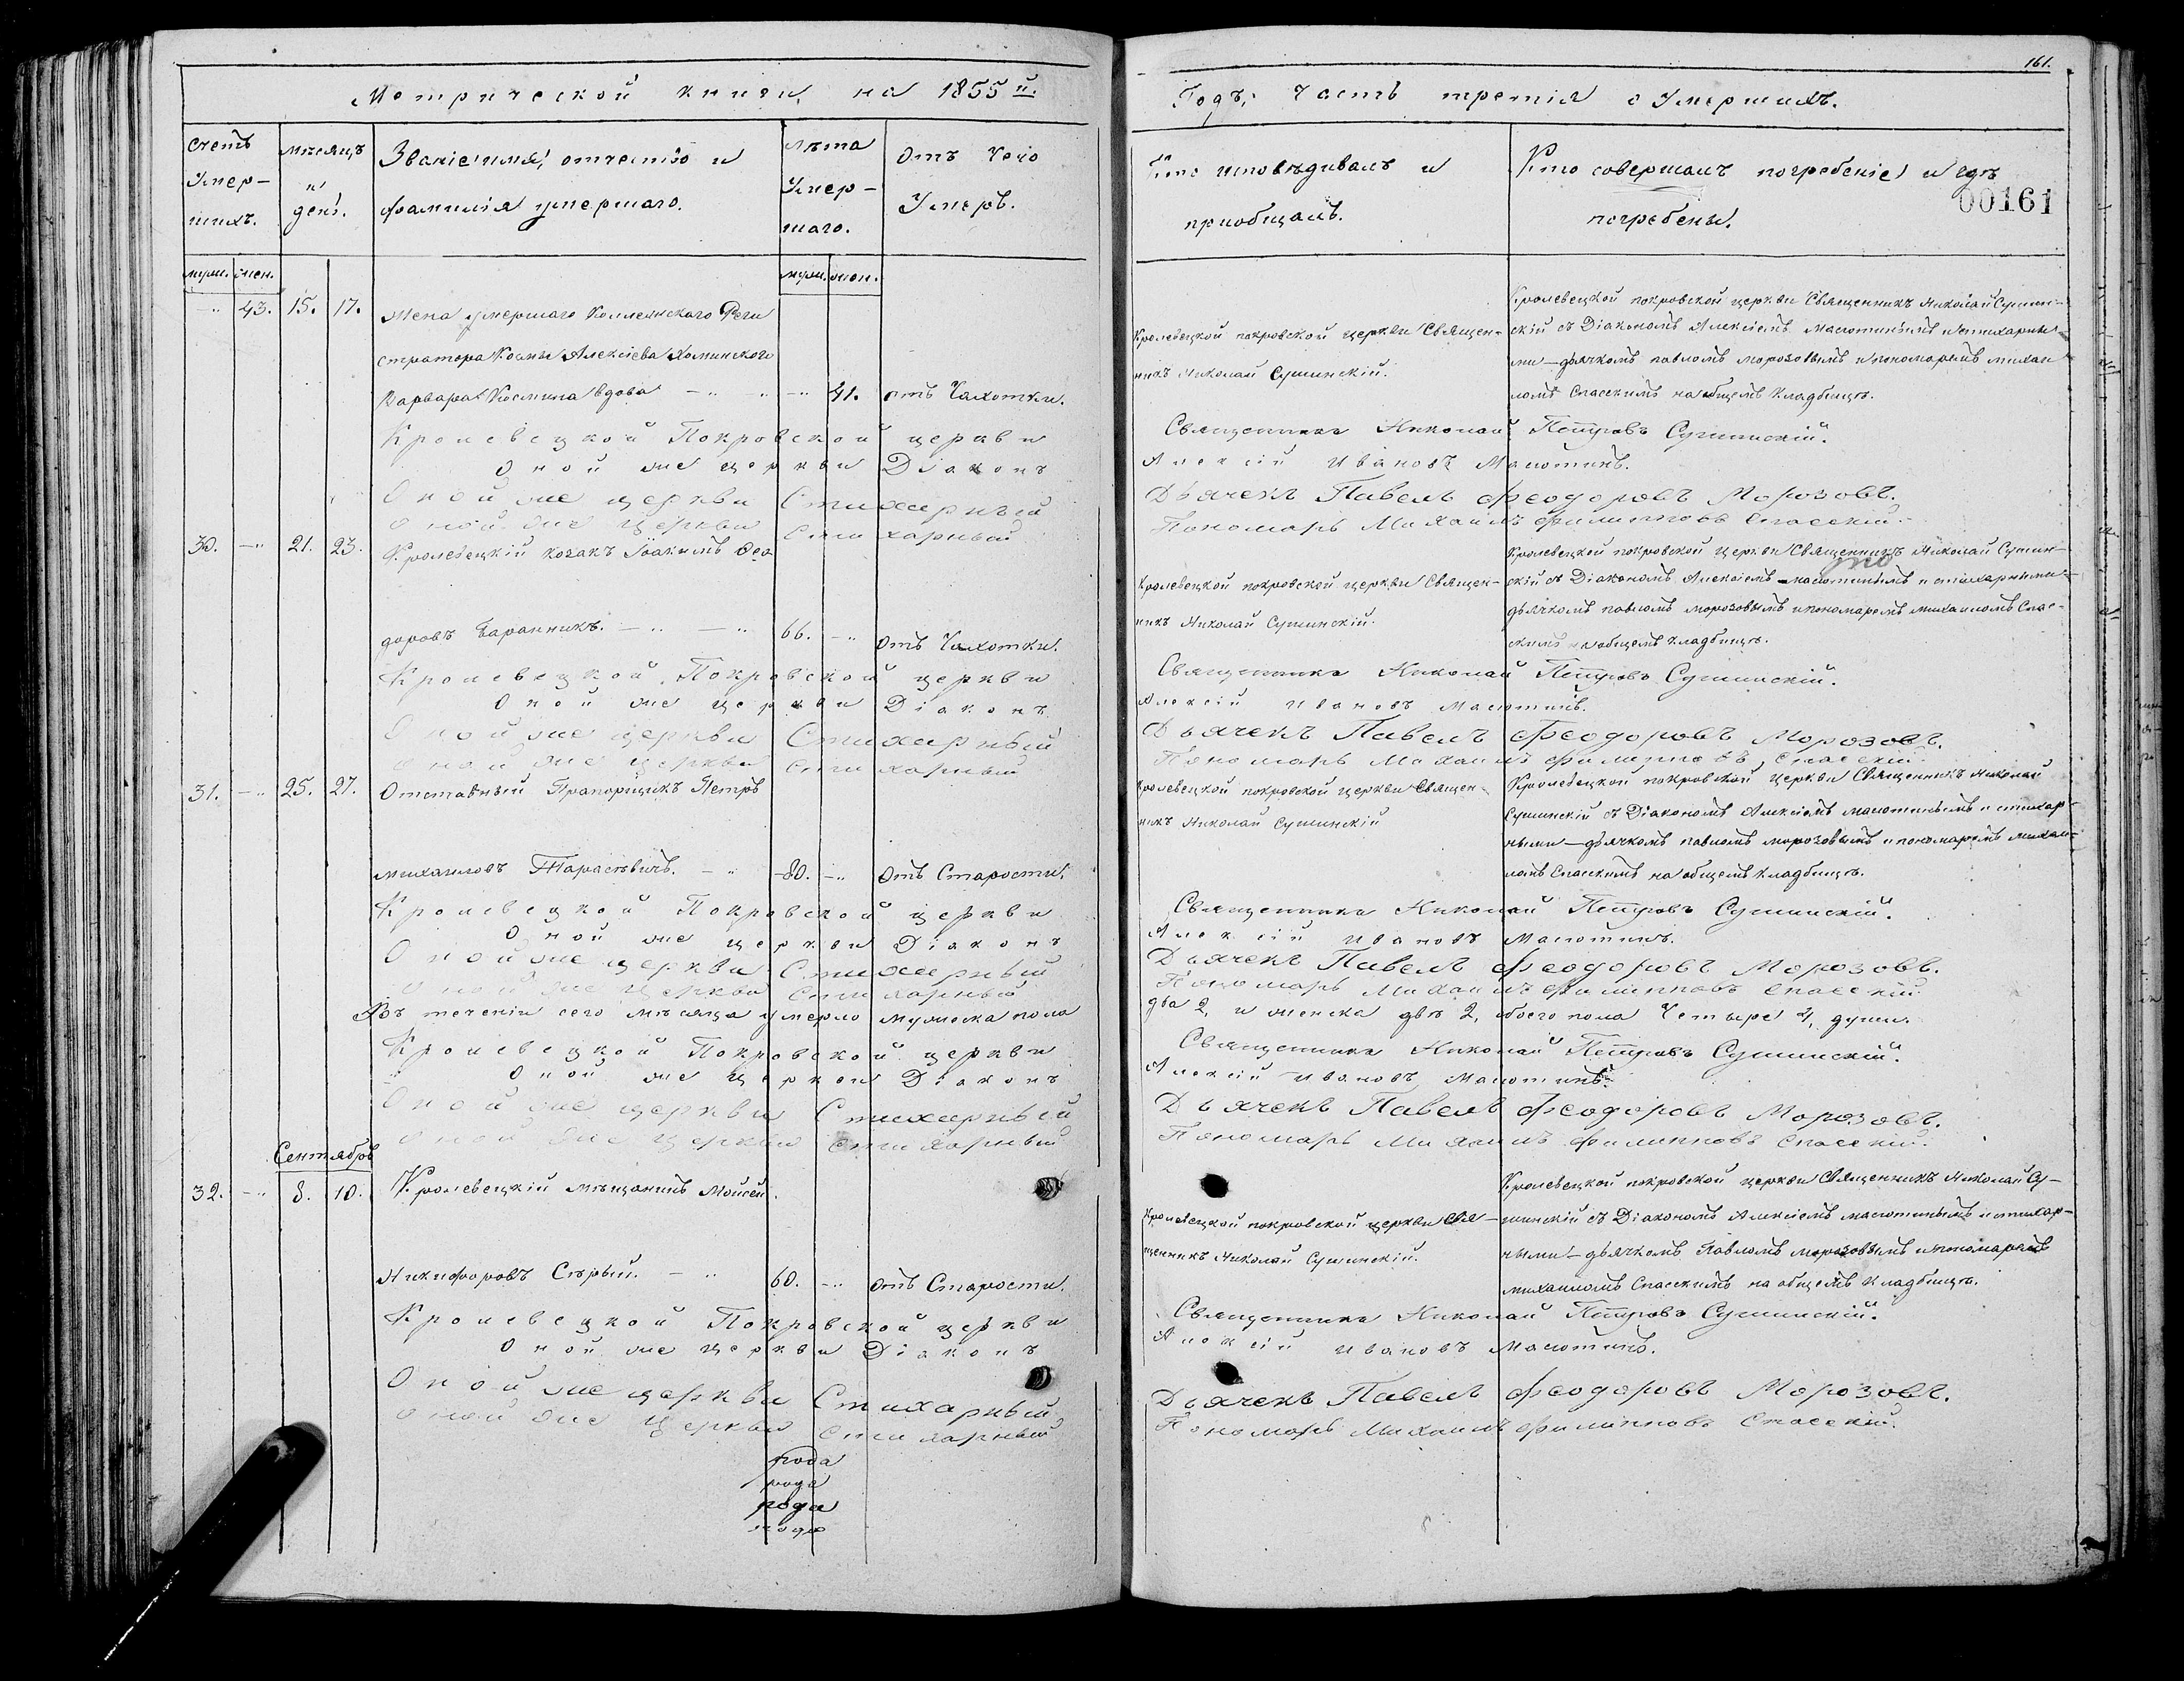 161.
Метрической книги, на 1855й.
Годъ, Часть третія о Умершихъ.
00161
Счетъ Умер-шихъ.
Мѣсяцъ и день.
Званіе, имя, отчество и фамилія умершаго.
Лѣта Умер-шаго.
Отъ чего Умеръ.
Кто исповѣдивалъ и приобщалъ.
Кто совершалъ погребеніе и гдѣ погребены.
муж. жен.
муж. жен.
43. 15. 17. Жена умершаго Коллежскаго Реги
стратора Іоанна Алексіева Хоминскаго
Варвара Космина вдова 41. отъ Чахотки.
Кролевецкой покровской церкви Священ-
никъ Николай Сушинскій.
Кролевецкой покровской церкви Священникъ Николай Сушин-
скій съ Діакономъ Алексіемъ Малютинымъ и стихарны-
ми дьячкомъ павломъ морозовымъ и пономаремъ михаи
ломъ Спасскимъ на общемъ кладбищѣ.
Кролевецкой Покровской церкви Священникъ Николай Петровъ Сушинскій.
Оной же церкви Діаконъ Алексій Ивановъ Малютинъ.
Оной же церкви Стихарный Дьячекъ Павелъ Феодоровъ Морозовъ.
Оной же церкви Стихарный Пономарь Михаилъ Филипповъ Спасскій.
30. 21. 23. Кролевецкій козакъ Іоакимъ Ѳео
доровъ Баранникъ. 66. Отъ Чахотки.
Кролевецкой покровской церкви Священ-
никъ Николай Сушинскій.
Кролевецкой покровской церкви Священникъ Николай Сушин-
скій съ Діакономъ Алексіемъ малютинымъ и стихарными
дьячкомъ павломъ морозовымъ и пономаремъ михаиломъ Спас-
скимъ на общемъ кладбищѣ.
Кролевецкой Покровской церкви Священникъ Николай Петровъ Сушинскій.
Оной же церкви Діаконъ Алексій Ивановъ Малютинъ.
Оной же церкви Стихарный Дьячекъ Павелъ Феодоровъ Морозовъ.
Оной же церкви Стихарный Пономарь Михаилъ Филипповъ Спасскій.
31. 25. 27. Отставный Прапорщикъ Петръ
михаиловъ Тарасѣвичъ. 80. Отъ Старости.
Кролевецкой покровской церкви Священ-
никъ Николай Сушинскій
Кролевецкой покровской церкви Священникъ Николай
Сушинскій съ Діакономъ Алексіемъ малютинымъ и стихар-
ными дьячкомъ павломъ морозовымъ и пономаремъ михаи-
ломъ Спасскимъ на общемъ кладбищѣ.
Кролевецкой Покровской церкви Священникъ Николай Петровъ Сушинскій.
Оной же церкви Діаконъ Алексій Ивановъ Малютинъ.
Оной же церкви Стихарный Дьячекъ Павелъ Феодоровъ Морозовъ.
Оной же церкви Стихарный Пономарь Михаилъ Филипповъ Спасскій
Въ теченіи сего мѣсяца умерло мужеска пола два 2, и женска двѣ 2, обоего пола Четыре 4, души.
Кролевецкой Покровской церкви Священникъ Николай Петровъ Сушинскій.
Оной же церкви Діаконъ Алексій Ивановъ Малютинъ.
Оной же церкви Стихарный Дьячекъ Павелъ Феодоровъ Морозовъ.
Оной же церкви Стихарный Пономарь Михаилъ Филипповъ Спасскій.
Сентябрь
32. 8. 10. Кролевецкій мѣщанинъ Моисей
Никифоровъ Сѣрый. 60. Отъ Старости.
Кролевецкой покровской церкви Свя-
щенникъ Николай Сушинскій.
Кролевецкой покровской церкви Священникъ Николай Су-
шинскій съ Діакономъ Алексіемъ малютинымъ и стихар-
ными дьячкомъ Павломъ морозовымъ и пономаремъ
михаиломъ Спасскимъ на общемъ кладбищѣ.
Кролевецкой Покровской церкви Священникъ Николай Петровъ Сушинскій.
Оной же церкви Діаконъ Алексій Ивановъ Малютинъ.
Оной же церкви Стихарный Дьячекъ Павелъ Феодоровъ Морозовъ.
Оной же церкви Стихарный Пономарь Михаилъ Филипповъ Спасскій.